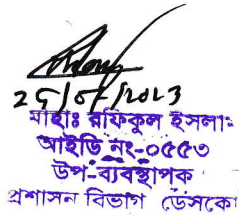 25/05/2023
মোহাঃ রফিকুল ইসলাম
আইডি নং-০৫৫৩
উপ-ব্যবস্থাপক
প্রশাসন বিভাগ ডেসকো